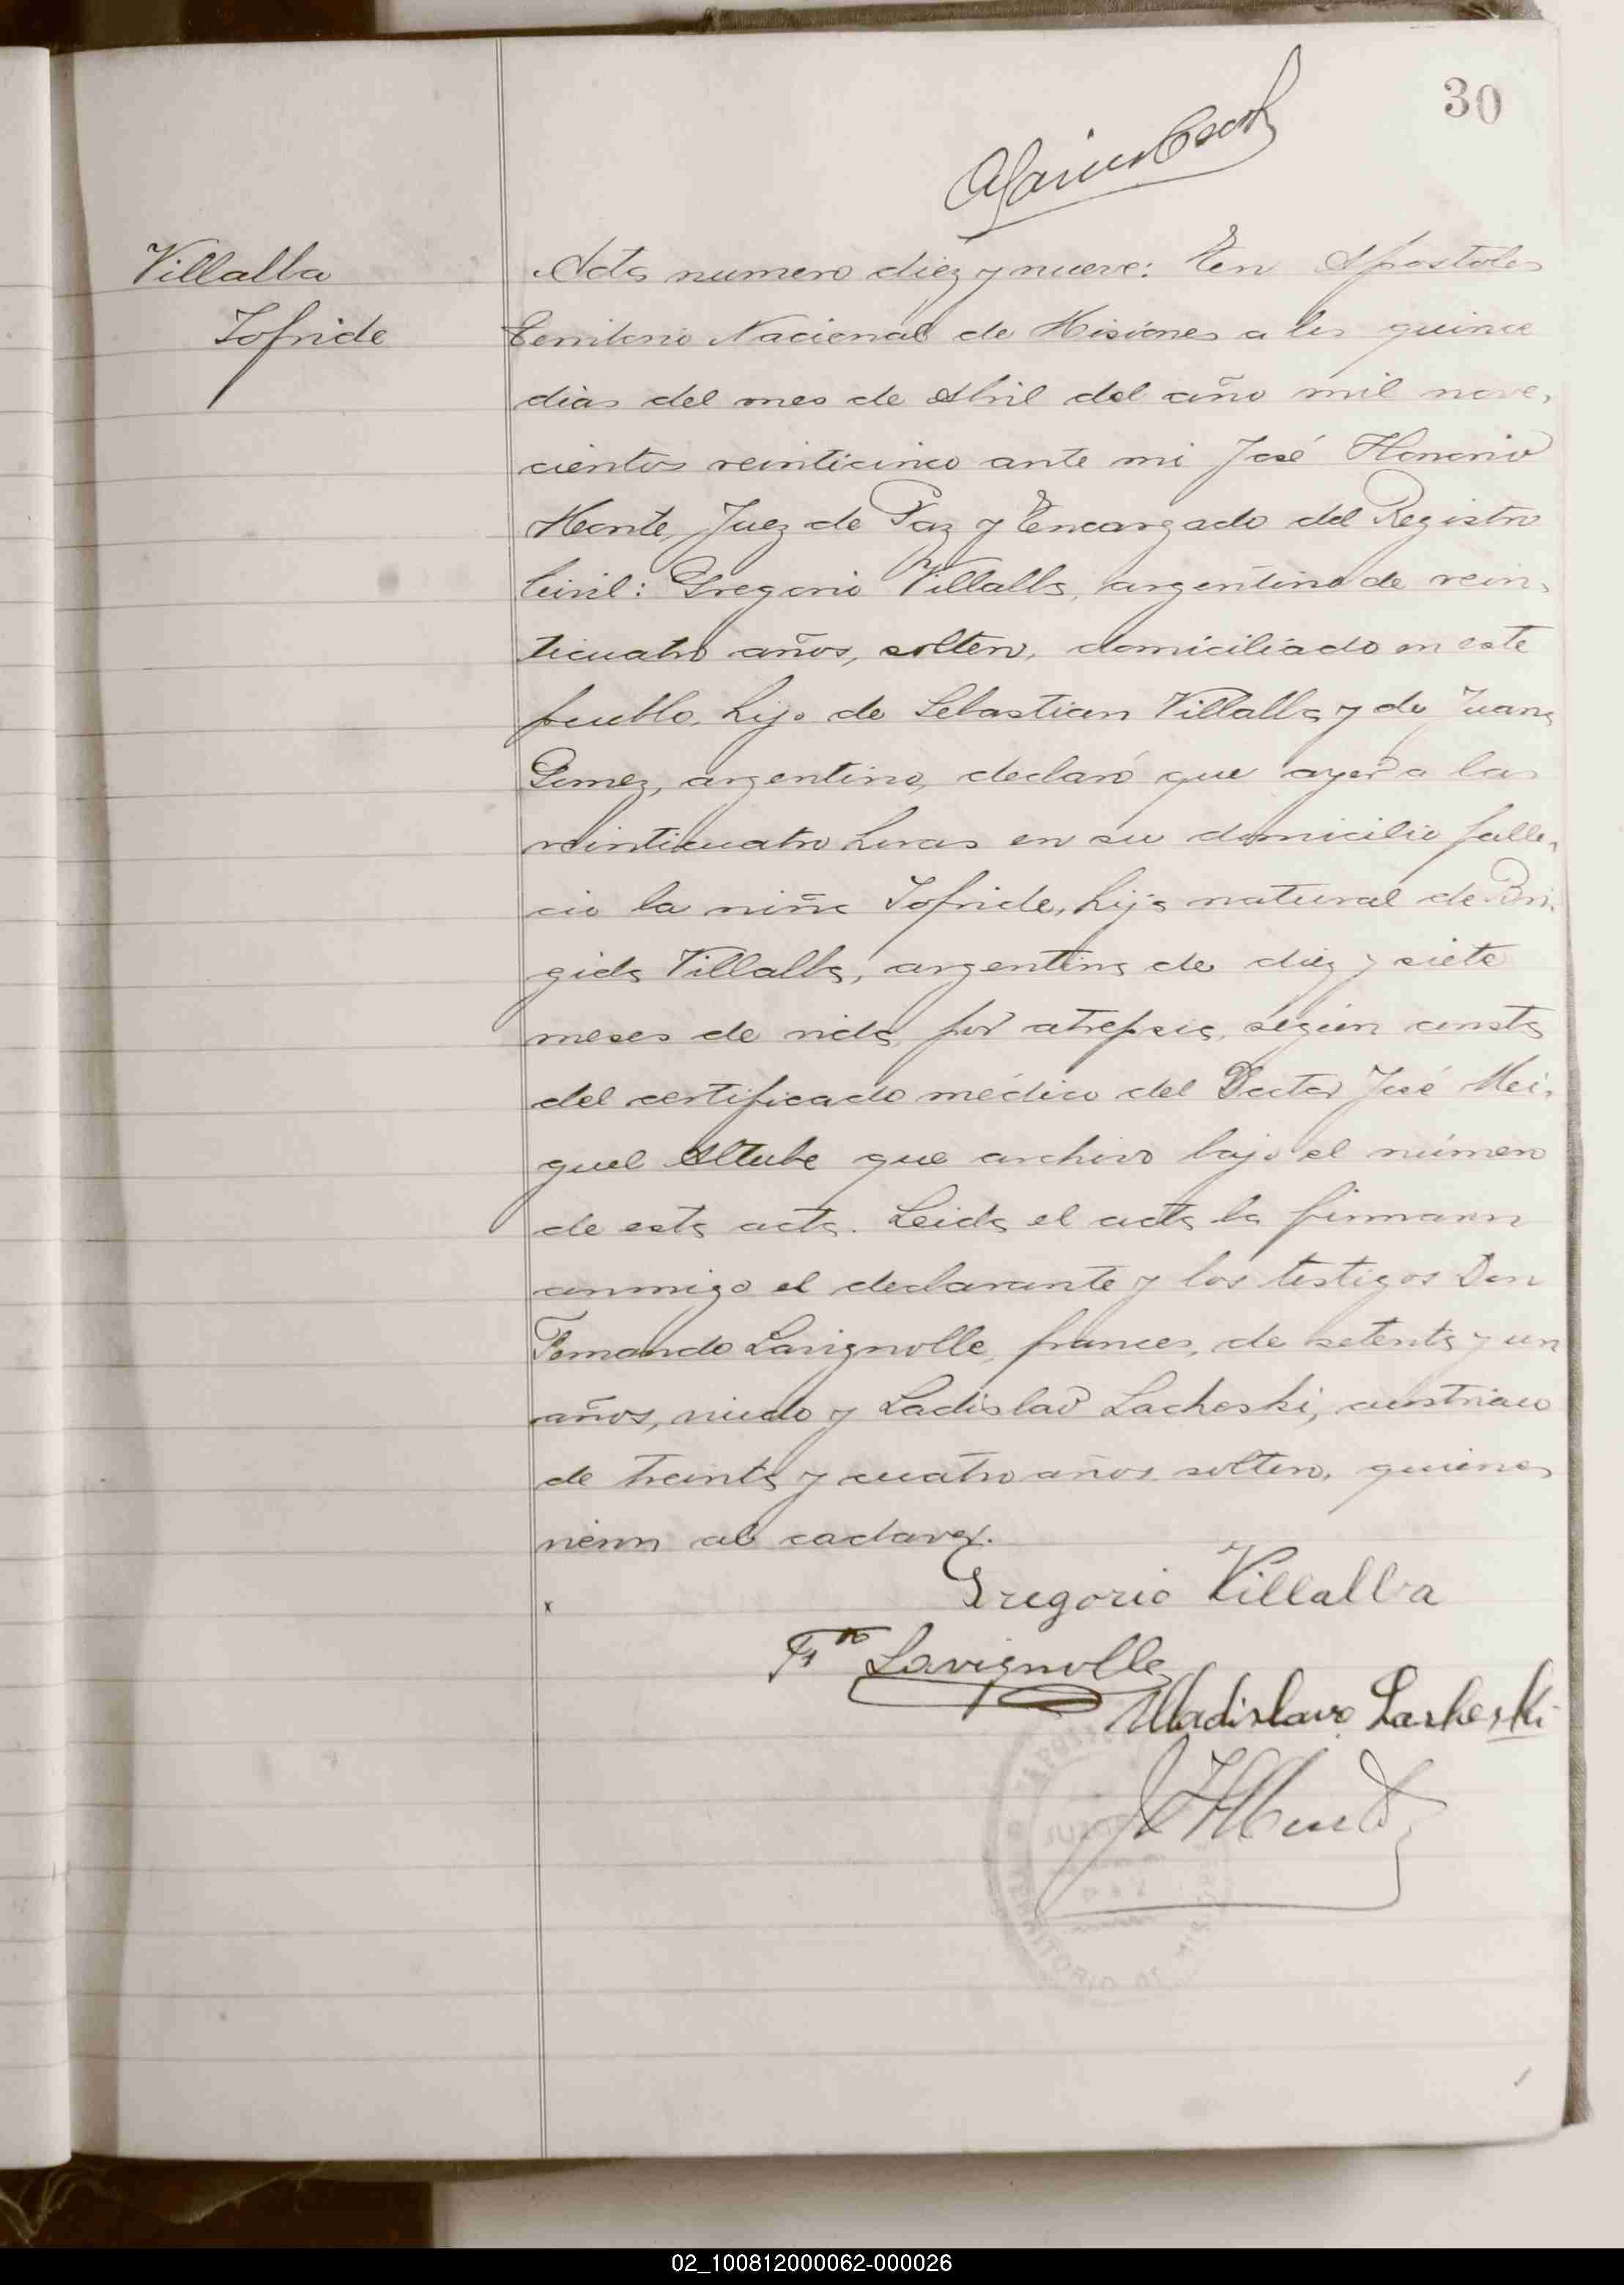 30
Villalba
Acta numero diez y nueve: En Apostoles
Iofride
Territorio Nacional de Misiones a los quince
dias del mes de Abril del año mil nove-
cientos veinticinco ante mi José Honorio
Monte, Juez de Paz y Encargado del Registro
Civil: Gregorio Villalba, argentino de vein-
ticuatro años, soltero, domiciliado en este
pueblo, hijo de Sebastian Villalba y de Juana
Gomez, argentino, declaró que ayer a las
veinticuatro horas en su domicilio falle-
cio la niña Iofride, hija natural de Bri-
gida Villalba, argentina de diez y siete
meses de vida, por atrepsia, según consta
del certificado médico del Doctor José Mi-
guel Altube que archivo bajo el número
de esta acta. Leida el acta la firmaron
conmigo el declarante y los testigos Don
Fernando Lavignolle, frances, de setenta y un
años, viudo y Ladislao Lacheski, austriaco
de treinta y cuatro años soltero, quienes
vieron al cadaver.
x
Gregorio Villalba
Fdo Lavignolle
Uladislavo Lasheski
02_100812000062-000026